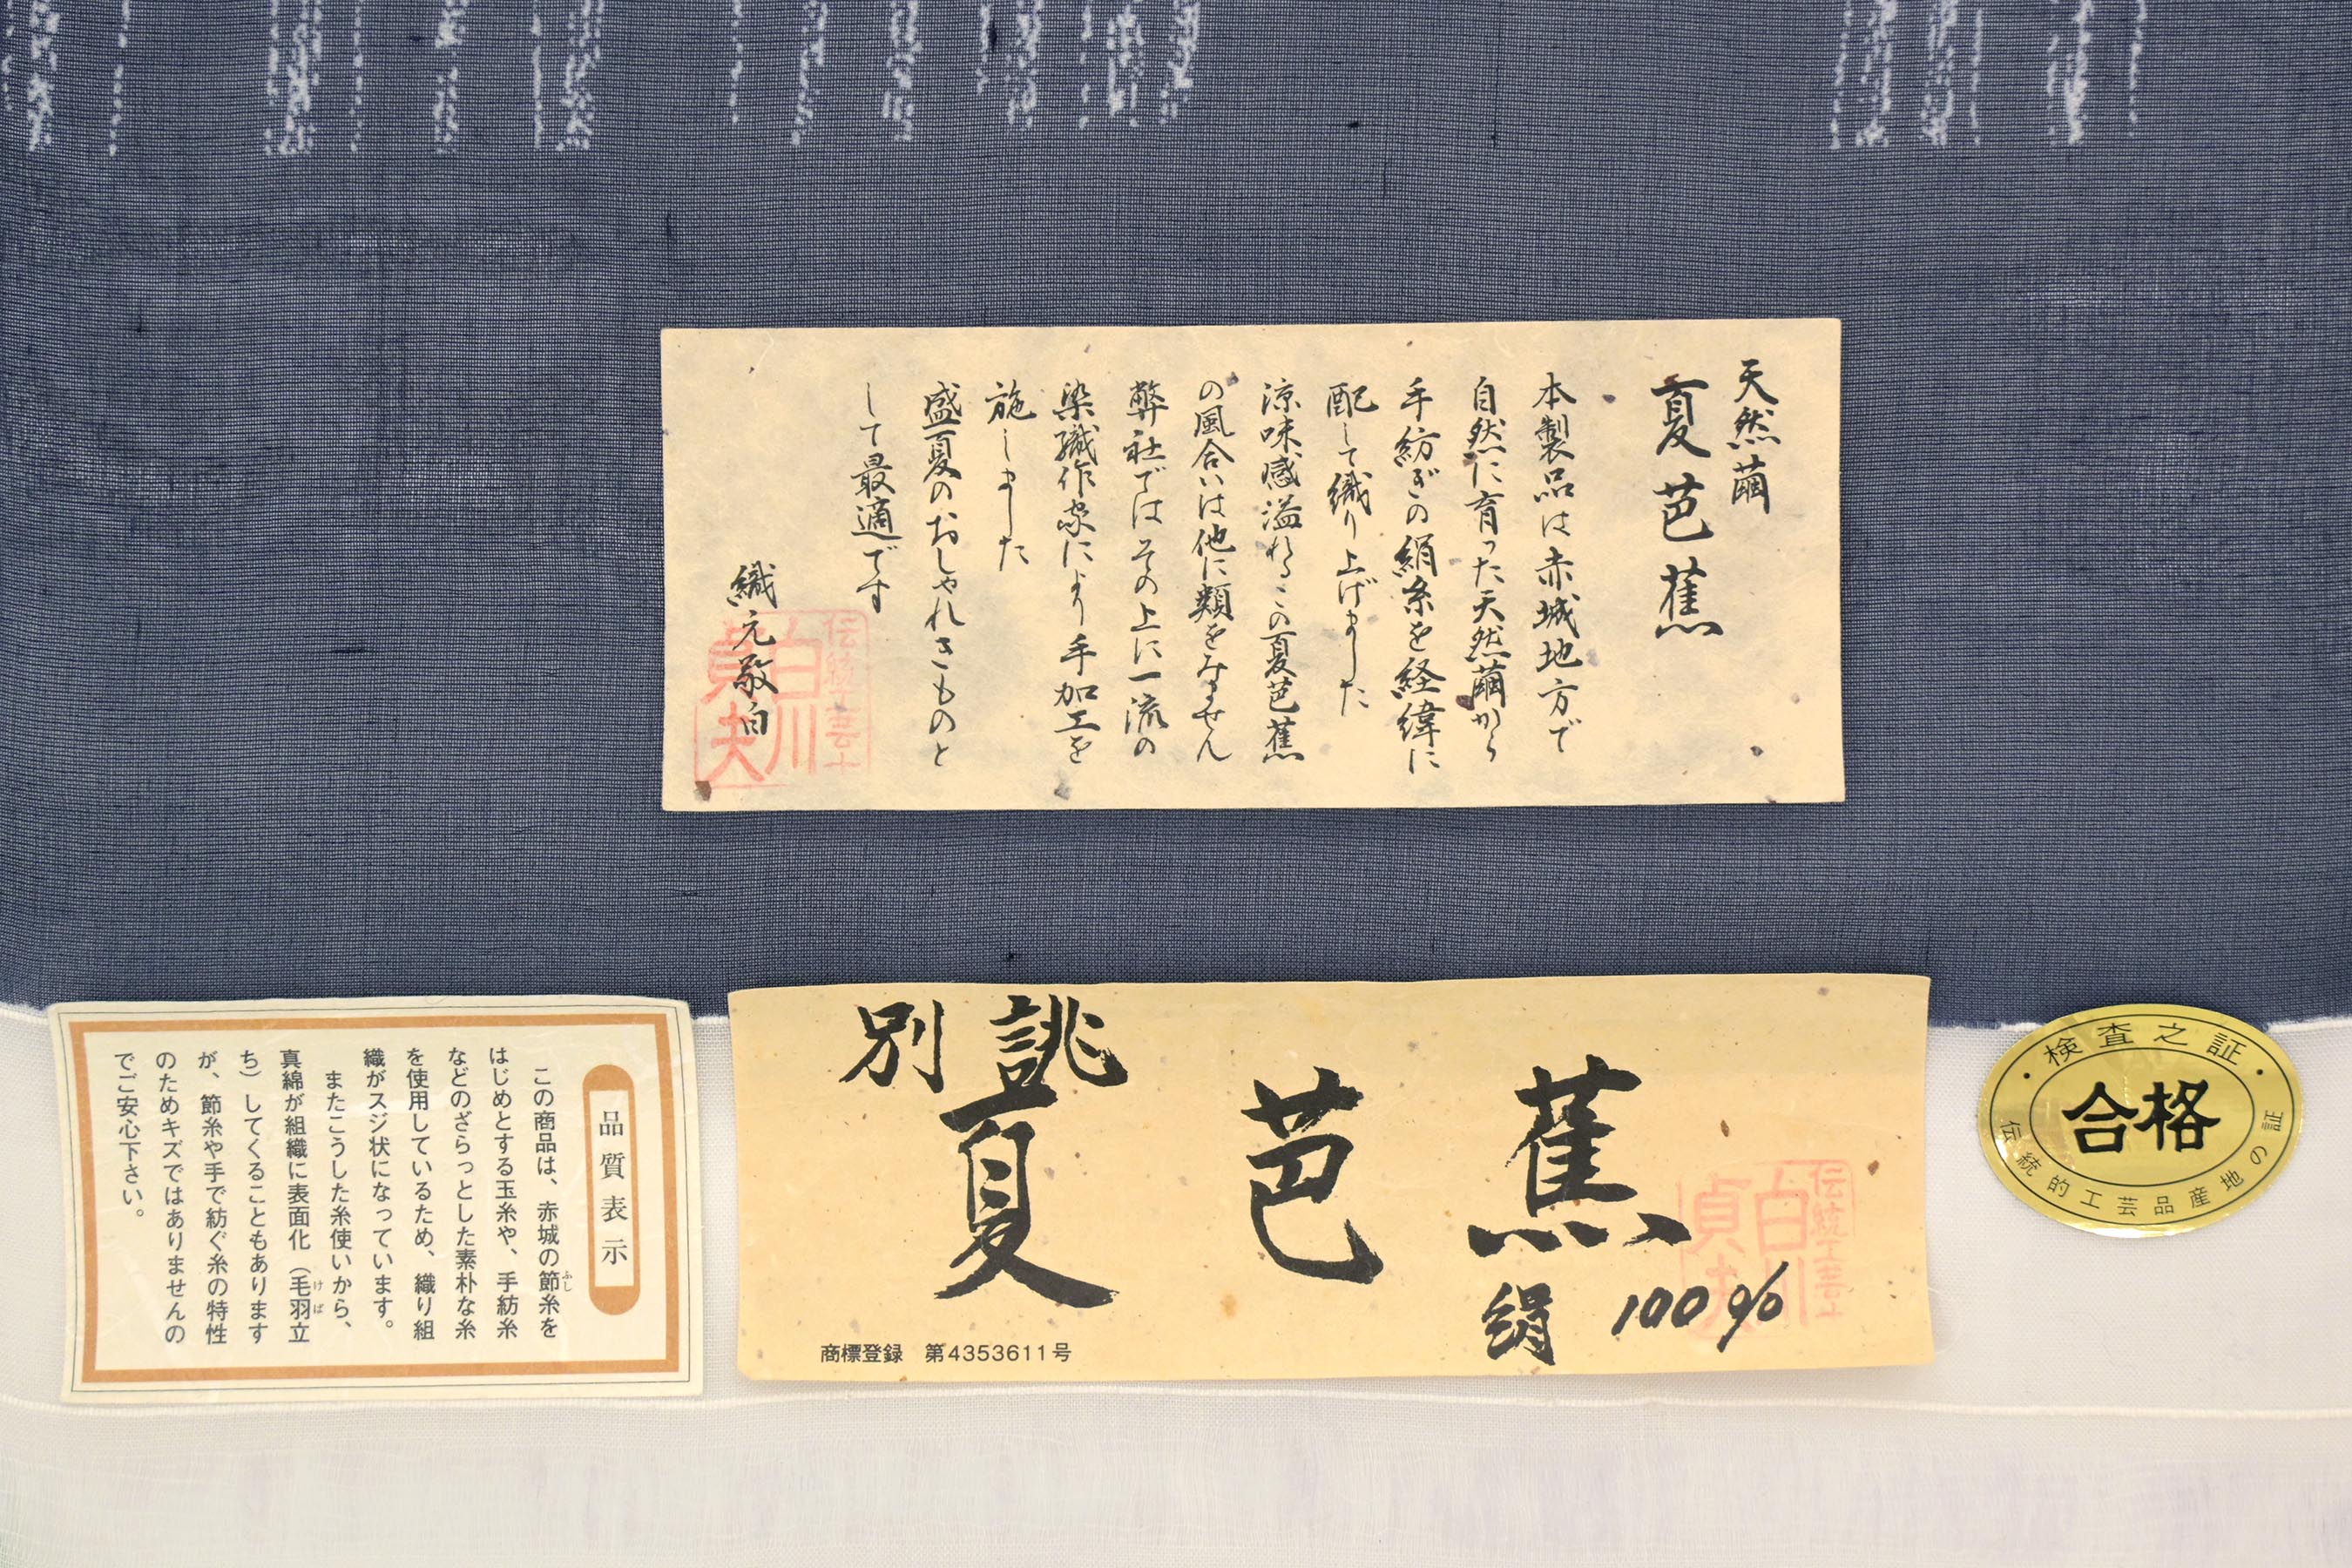 天然繭
夏芭蕉
本製品は赤城地方で
自然に育った天然繭から
手紡ぎの絹糸を経緯に
配して織り上げました
涼味感溢れるこの夏芭蕉
の風合いは他に類をみません
弊社ではその上に一流の
染織作家により手加工を
施しました
盛夏のおしゃれきものと
して最適です
織元敬白
伝統工芸士
白川
貞夫
品質表示
この商品は、赤城の節糸を
ふし
はじめとする玉糸や、手紡糸
などのざらっとした素朴な糸
を使用しているため、織り組
織がスジ状になっています。
またこうした糸使いから、
真綿が組織に表面化（毛羽立
けば
ち）してくることもあります
が、節糸や手で紡ぐ糸の特性
のためキズではありませんの
でご安心下さい。
別誂
夏芭蕉
絹100%
商標登録 第4353611号
伝統工芸士
白川
貞夫
・検査之証・
合格
伝統的工芸品産地の証